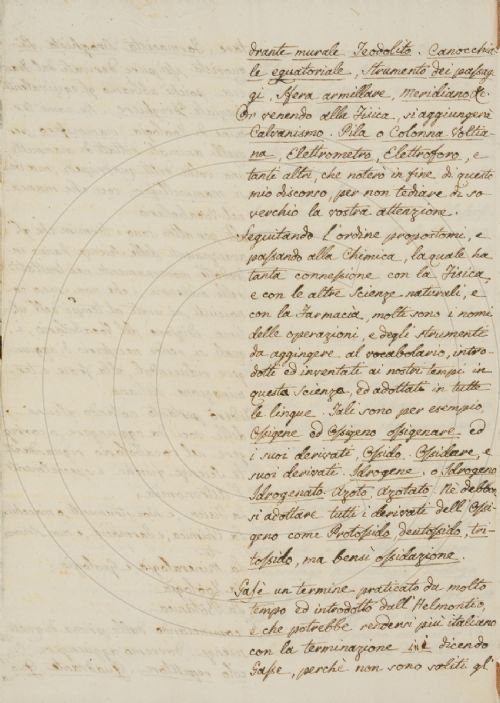 drante murale Teodolito. Canocchia-
le equatoriale, Strumento dei passag-
gi, Sfera armillare, Meridiano &c.
Or venendo alla Fisica, si aggiungerà
Calvanismo. Pila o Colonna Voltia-
na, Elettrometro, Elettroforo, e
tanti altri, che noterò in fine di questo
mio discorso, per non tediare di so-
verchio la vostra attenzione.
Seguitando l'ordine propostomi, e
passando alla Chimica, la quale ha
tanta connessione con la Fisica,
e con le altre scienze naturali, e
con la Farmacia, molti sono i nomi
delle operazioni, e degli strumenti
da aggingere al vocabolario, intro-
dotti ed inventati ai nostri tempi in
questa scienza, ed adottati in tutte
le lingue. Tali sono per esempio,
Ossigene od Ossigeno ossigenare ed
i suoi derivati, Ossido. Ossidare, e
suoi derivati. Idrogene. o Idrogeno
Idrogenato. Azoto, Azotato. Nè debbon-
si adottare tutti i derivati dell'Ossi-
geno come Protossido, deutossido, tri-
tossido, ma bensì ossidazione.
Gas è un termine praticato da molto
tempo ed introdotto dall'Helmontio,
e che potrebbe rendersi più italiano
con la terminazione dicendo
Gasse, perchè non sono soliti gl'